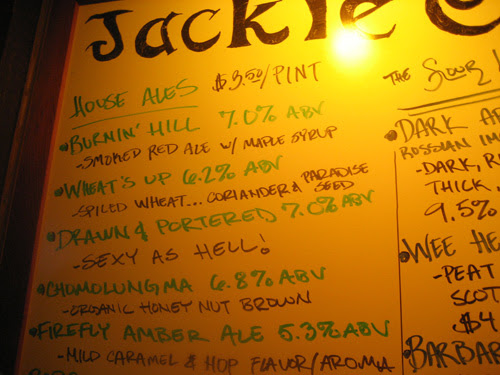 JACKIE O
HOUSE ALES $3.50/PINT
BURNIN' HILL 7.0% ABV
-SMOKED RED ALE W/ MAPLE SYRUP
WHEAT'S UP 6.2% ABV
-SPICED WHEAT... CORIANDER & PARADISE SEED
DRAWN & PORTERED 7.0% ABV
-SEXY AS HELL!
CHOMOLUNGMA 6.8% ABV
-ORGANIC HONEY NUT BROWN
FIREFLY AMBER ALE 5.3% ABV
-MILD CARAMEL & HOP FLAVOR/AROMA
THE SOUR
DARK
RUSSIAN IM
-DARK, R
THICK.
9.5%
WEE HE
-PEAT
SCOT
$4
BARBAR